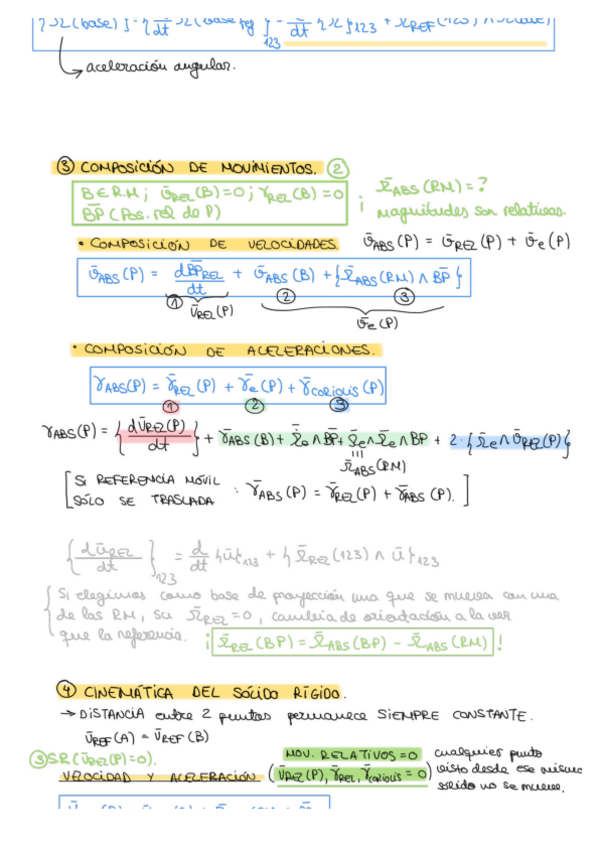 {Ω̄(base)} = { d/dt Ω̄(base)
}123 = d/dt {Ω̄}123 + Ω̄REF(123) ∧
↳ aceleración angular.
③ COMPOSICIÓN DE MOVIMIENTOS. ②
B ∈ R.M ; ῡREL(B) = 0 ; γ̄REL(B) = 0
B̄P̄ (Pos. rel de P)
¡ Ω̄ABS(RM) = ?
magnitudes son relativas.
• COMPOSICIÓN DE VELOCIDADES ῡABS(P) = ῡREL(P) + ῡe(P)
ῡABS(P) = dB̄P̄REL/dt + ῡABS(B) + {Ω̄ABS(RM) ∧ B̄P̄}
① ② ③
ῡREL(P) ῡe(P)
• COMPOSICIÓN DE ACELERACIONES.
γ̄ABS(P) = γ̄REL(P) + γ̄e(P) + γ̄CORIOLIS(P)
① ② ③
γABS(P) = { dῡREL(P)/dt } + γ̄ABS(B) + Ω̄̇e ∧ B̄P + Ω̄e ∧ Ω̄e ∧ BP + 2·{Ω̄e ∧ ῡREL(P)}
Ω̄ABS(RM)
[ SI REFERENCIA MÓVIL
SÓLO SE TRASLADA : γ̄ABS(P) = γ̄REL(P) + γ̄ABS(P). ]
{ dūREL/dt }123 = d/dt {ū}123 + {Ω̄REL(123) ∧ ū}123
{ Si elegimos como base de proyección una que se mueva con una
de las RM, su Ω̄REL = 0, cambia de orientación a la vez
que la referencia. ¡ Ω̄REL(BP) = Ω̄ABS(BP) − Ω̄ABS(RM) !
④ CINEMÁTICA DEL SÓLIDO RÍGIDO.
→ DISTANCIA entre 2 puntos permanece SIEMPRE CONSTANTE.
ῡREF(A) = ῡREF(B)
③ SR (ῡREL(P)=0).
VELOCIDAD Y ACELERACIÓN ( MOV. RELATIVOS = 0
ῡREL(P), γ̄REL, γ̄coriolis = 0 )
cualquier punto
visto desde ese mismo
sólido no se mueve.